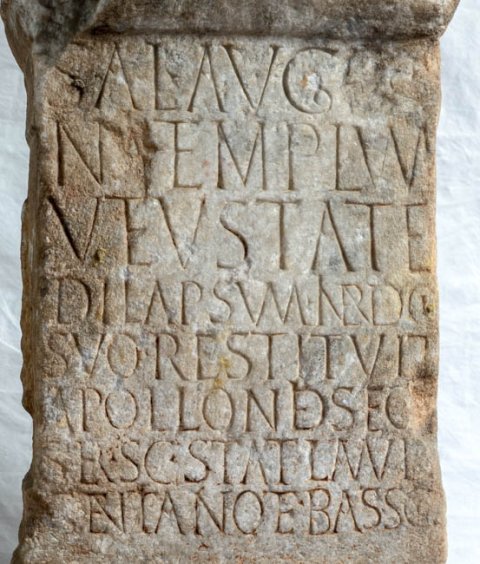 SAL AVG
N TEMPLVM
VEVSTATE
DILAPSVM·
SVO·RESTITVIT
APOLLON
SC·STAT LAVR
ENTIANO E·BASSO